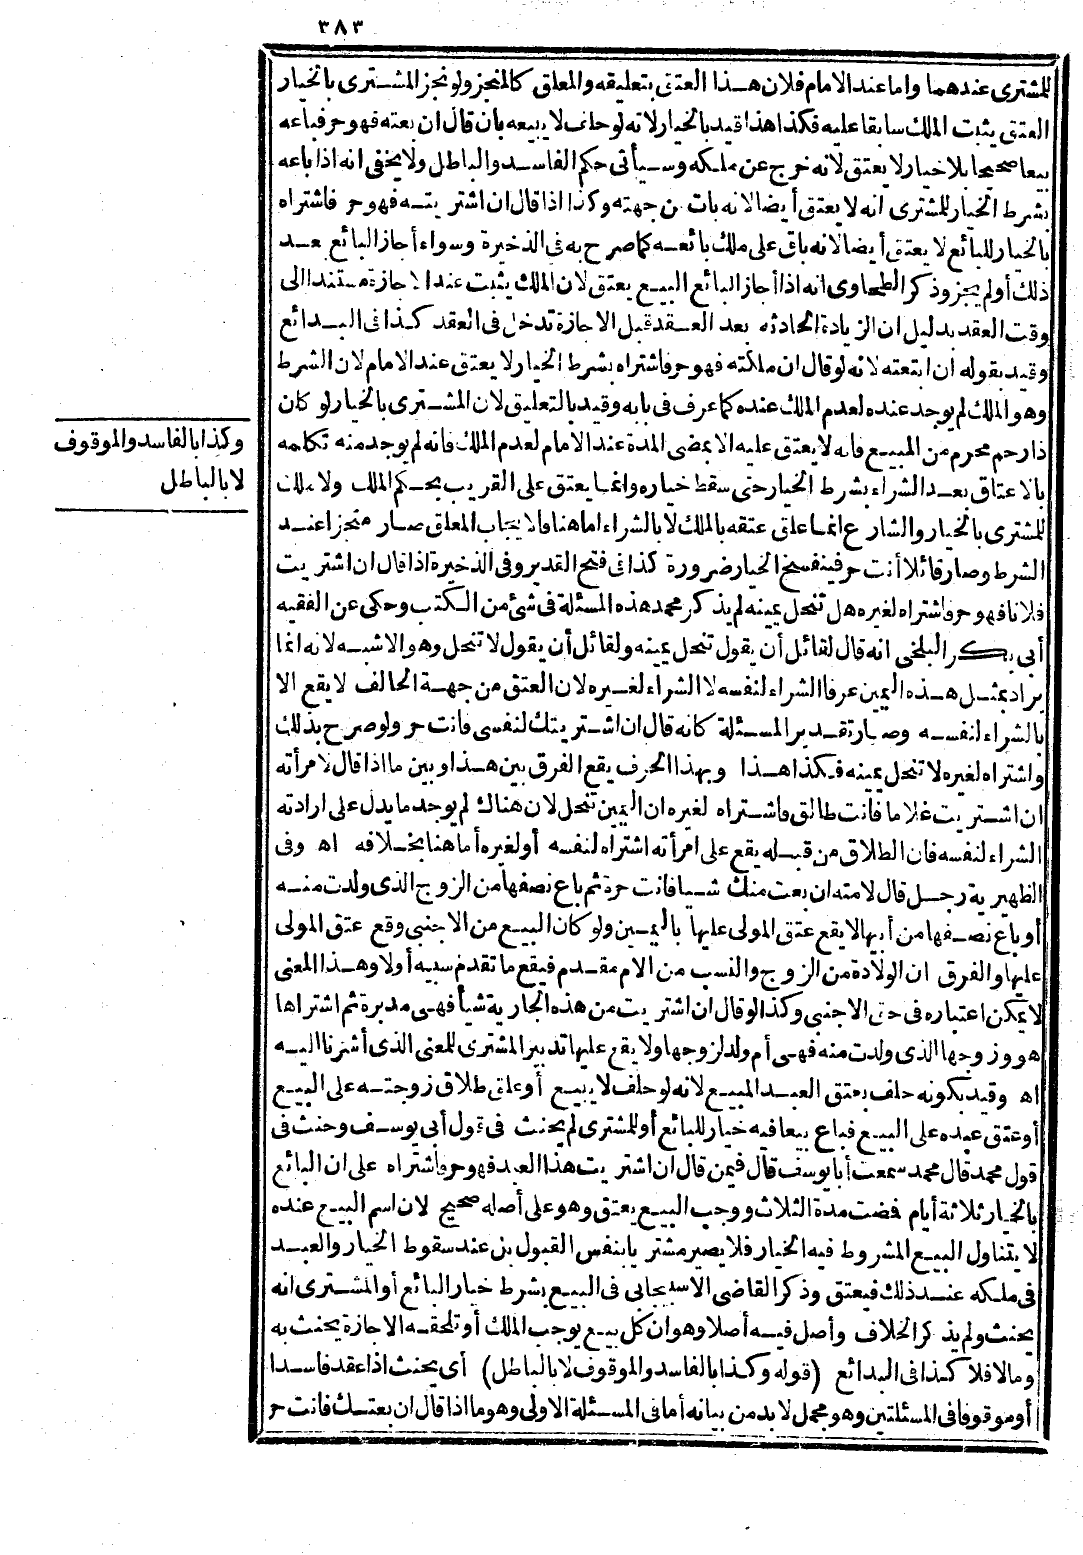 ٣٨٣
للمشترى عندهما واما عند الامام فلان هذا العتق بتعليقه والمعلق كالمنجز ولو نجز المشترى بالخيار
العتق يثبت الملك سابقا عليه فكذا هذا قيد بالخيار لانه لو حلف لا يبيعه بان قال ان بعته فهو حر فباعه
بيعا صحيحا بلا خيار لا يعتق لانه خرج عن ملكه وسيأتى حكم الفاسد والباطل ولا يخفى انه اذا باعه
بشرط الخيار للمشترى انه لا يعتق أيضا لانه بات من جهته وكذا اذا قال ان اشتريته فهو حر فاشتراه
بالخيار للبائع لا يعتق أيضا لانه باق على ملك بائعه كما صرح به فى الذخيرة وسواء أجاز البائع بعد
ذلك أولم يجز وذكر الطحاوى انه اذا أجاز البائع البيع يعتق لان الملك يثبت عند الاجازة مستندا الى
وقت العقد بدليل ان الزيادة الحادثة بعد العقد قبل الاجازة تدخل فى العقد كذا فى البدائع
وقيد بقوله ان ابتعته لانه لو قال ان ملكته فهو حر فاشتراه بشرط الخيار لا يعتق عند الامام لان الشرط
وهو الملك لم يوجد عنده لعدم الملك عنده كما عرف فى بابه وقيد بالتعليق لان المشترى بالخيار لو كان
ذا رحم محرم من المبيع فانه لا يعتق عليه الا بمضى المدة عند الامام لعدم الملك فانه لم يوجد منه تكلمه
بالاعتاق بعد الشراء بشرط الخيار حتى سقط خياره وانما يعتق على القريب بحكم الملك ولا ملك
للمشترى بالخيار والشارع انما علق عتقه بالملك لا بالشراء اما هنا فالايجاب المعلق صار منجزا عند
الشرط وصار قائلا أنت حر فينفسخ الخيار ضرورة كذا فى فتح القدير وفى الذخيرة اذا قال ان اشتريت
فلانا فهو حر فاشتراه لغيره هل تنحل يمينه لم يذكر محمد هذه المسئلة فى شئ من الكتب وحكى عن الفقيه
أبى بكر البلخى انه قال لقائل أن يقول تنحل يمينه ولقائل أن يقول لا تنحل وهو الاشبه لانه انما
يراد بمثل هذه اليمين عرفا الشراء لنفسه لا الشراء لغيره لان العتق من جهة الحالف لا يقع الا
بالشراء لنفسه وصار تقدير المسئلة كانه قال ان اشتريتك لنفسى فانت حر ولو صرح بذلك
واشتراه لغيره لا تنحل يمينه فكذا هذا وبهذا الحرف يقع الفرق بين هذا وبين ما اذا قال لامرأته
ان اشتريت غلاما فانت طالق فاشتراه لغيره ان اليمين تنحل لان هناك لم يوجد ما يدل على ارادته
الشراء لنفسه فان الطلاق من قبله يقع على امرأته اشتراه لنفسه أو لغيره أما هنا بخلافه اه وفى
الظهيرية رجل قال لامته ان بعت منك شيا فانت حرة ثم باع نصفها من الزوج الذى ولدت منه
أو باع نصفها من أبيها لا يقع عتق المولى عليها باليمين ولو كان البيع من الاجنبى وقع عتق المولى
عليها والفرق ان الولادة من الزوج والنسب من الام مقدم فيقع ما تقدم سببه أولا وهذا المعنى
لا يمكن اعتباره فى حق الاجنبى وكذا لو قال ان اشتريت من هذه الجارية شيأ فهى مدبرة ثم اشتراها
هو وزوجها الذى ولدت منه فهى أم ولد لزوجها ولا يقع عليها تدبير المشترى للمعنى الذى أشرنا اليه
اه وقيد بكونه حلف بعتق العبد المبيع لانه لو حلف لا يبيع أو علق طلاق زوجته على البيع
أو عتق عبده على البيع فباع بيعا فيه خيار للبائع أو للمشترى لم يحنث فى قول أبى يوسف وحنث فى
قول محمد قال محمد سمعت أبا يوسف قال فيمن قال ان اشتريت هذا العبد فهو حر فاشتراه على ان البائع
بالخيار ثلاثة أيام فمضت مدة الثلاث ووجب البيع يعتق وهو على أصله صحيح لان اسم البيع عنده
لا يتناول البيع المشروط فيه الخيار فلا يصير مشتريا بنفس القبول بل عند سقوط الخيار والعبد
فى ملكه عند ذلك فيعتق وذكر القاضى الاسبيجابى فى البيع بشرط خيار البائع أو المشترى انه
يحنث ولم يذكر الخلاف وأصل فيه أصلا وهو ان كل بيع يوجب الملك أو تلحقه الاجازة يحنث به
ومالا فلا كذا فى البدائع (قوله وكذا بالفاسد والموقوف لا بالباطل) أى يحنث اذا عقد فاسدا
أو موقوفا فى المسئلتين وهو مجمل لابد من بيانه أما فى المسئلة الاولى وهو ما اذا قال ان بعتك فانت حر
وكذا بالفاسد والموقوف
لا بالباطل